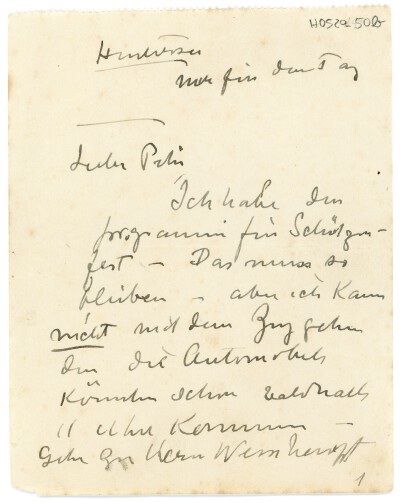 H0520-50b
nur für den Tag
Lieber
Ich habe den
programm für Schützen-
fest – Das muss so
bleiben – aber ich kann
nicht mit dem Zug gehen
den die Automobile
könnten schon bald nach
11 Uhr kommen –
Gehe zu Herrn
1